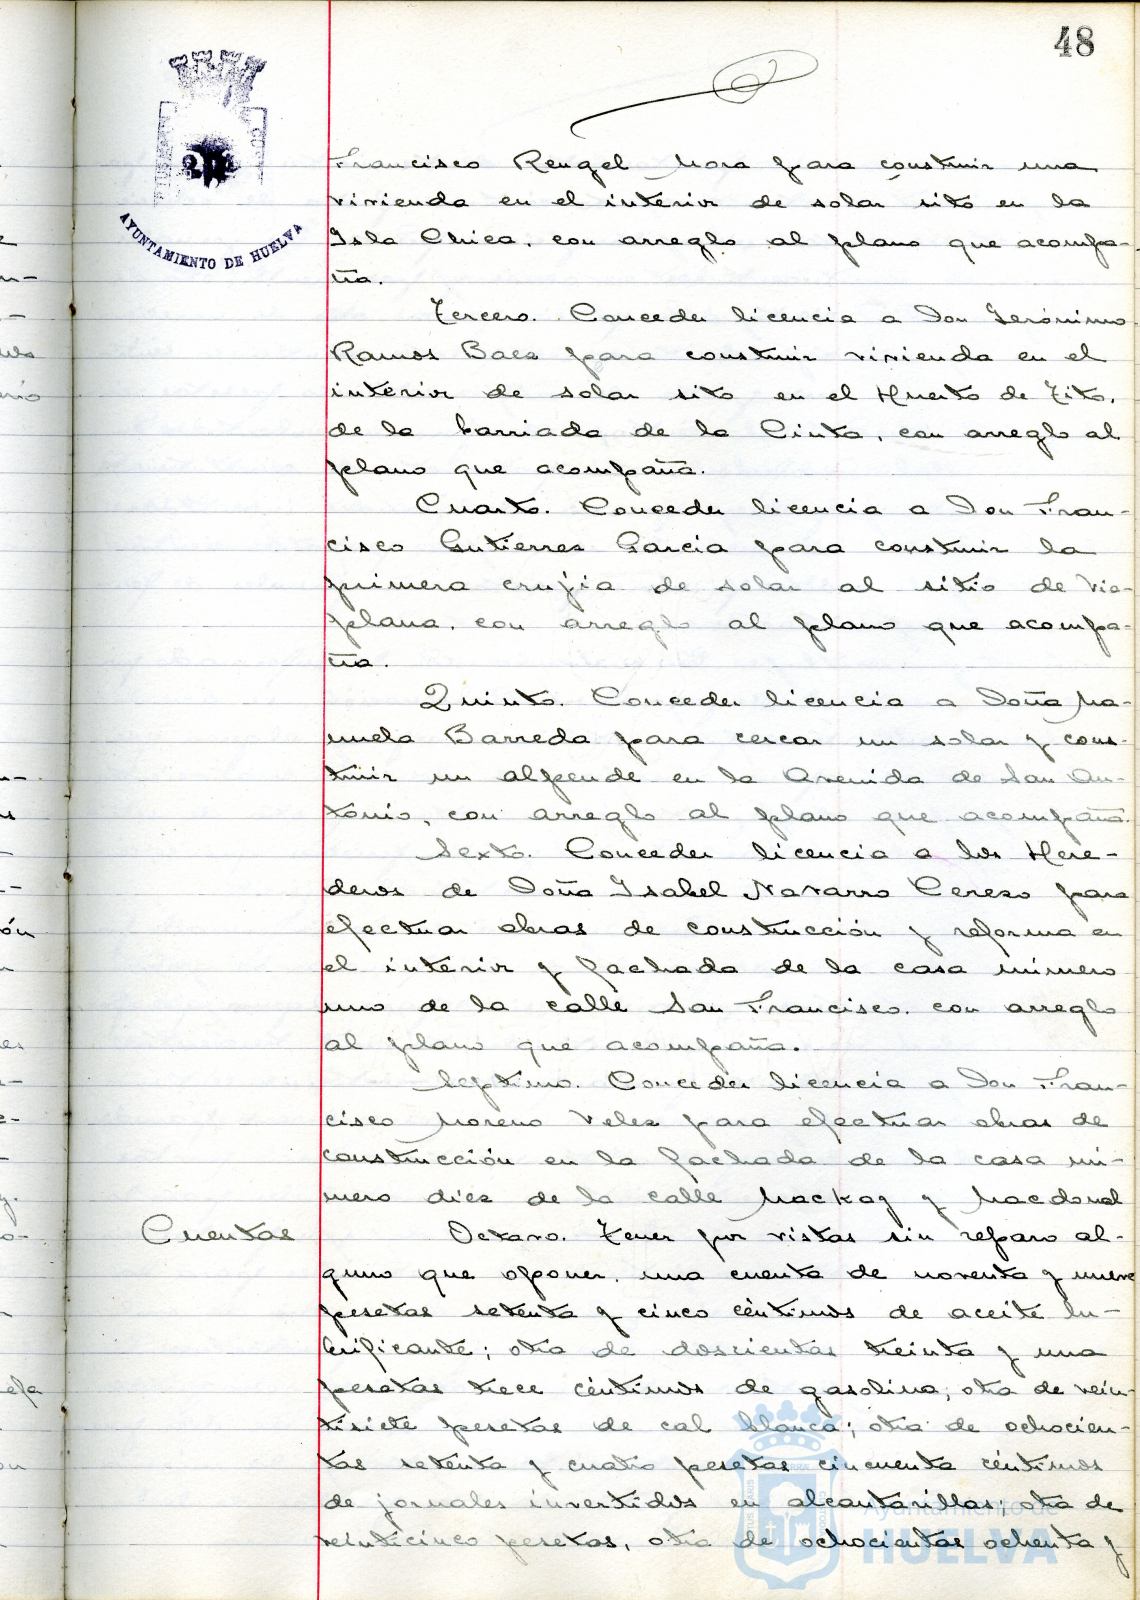 48
AYUNTAMIENTO DE HUELVA
Francisco Rengel Mora para construir una
vivienda en el interior de solar sito en la
Isla Chica, con arreglo al plano que acompa-
ña.
Tercero. Conceder licencia a Don Gerónimo
Ramos Baez para construir vivienda en el
interior de solar sito en el Huerto de Tito,
de la barriada de la Cinta, con arreglo al
plano que acompaña.
Cuarto. Conceder licencia a Don Fran-
cisco Gutierres Garcia para construir la
primera crujia de solar al sitio de Via-
plana, con arreglo al plano que acompa-
ña.
Quinto. Conceder licencia a Doña Ma-
nuela Barreda para cercar un solar y cons-
truir un alpende en la Avenida de San An-
tonio, con arreglo al plano que acompaña.
Sexto. Conceder licencia a los Here-
deros de Doña Isabel Navarro Cerezo para
efectuar obras de construcción y reforma en
el interior y fachada de la casa número
uno de la calle San Francisco, con arreglo
al plano que acompaña.
Septimo. Conceder licencia a Don Fran-
cisco Moreno Velez para efectuar obras de
construcción en la fachada de la casa nú-
mero diez de la calle Mackay y Macdonal
Cuentas
Octavo. Tener por vistas sin reparo al-
guno que oponer, una cuenta de noventa y nueve
pesetas setenta y cinco céntimos de aceite lu-
brificante; otra de doscientas treinta y una
pesetas trece céntimos de gasolina; otra de vein-
tisiete pesetas de cal blanca; otra de ochocien-
tas setenta y cuatro pesetas cincuenta céntimos
de jornales invertidos en alcantarillas; otra de
veinticinco pesetas, otra de ochocientas ochenta y
Ayuntamiento de
HUELVA